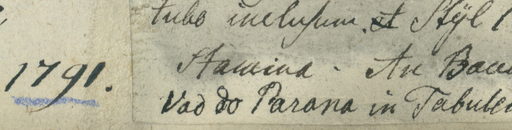 tubo inclusum. et Styl
Stamina. An Bacc
1791.
Vad do Parana in Tabulei